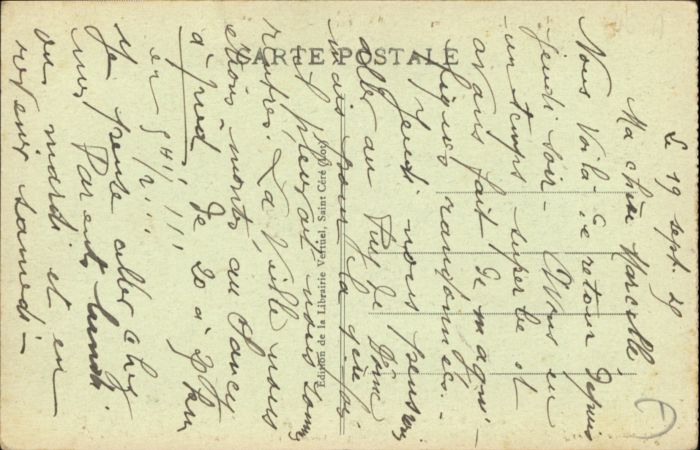 CARTE POSTALE
Édition de la Librairie Vertuel, Saint Céré (Lot)
Le 19 sept. 29
Ma chère Marcelle
Nous voilà de retour depuis
jeudi soir - Nous eu
un temps superbe et
avons fait de magni-
fiques randonnées.
Jeudi nous pensions
aller au Puy de Dôme
mais pour la 1ère fois
il pleuvait nous sommes
rentrés. La Veille nous
étions montés au Sancy
à pied de 20 à 27 km
en 5H 1/2 !!! !!!
Je pense aller chez
mes Parents lundi
ou mardi et en
revenir samedi -